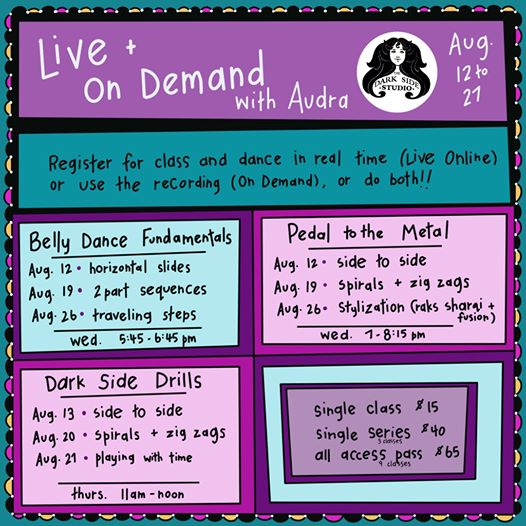 Live +
On Demand
with Audra
THE
DARK SIDE
• STUDIO •
Aug.
12 to
27
Register for class and dance in real time (Live Online)
or use the recording (On Demand), or do both!!
Belly Dance Fundamentals
Aug. 12 • horizontal slides
Aug. 19 • 2 part sequences
Aug. 26 • traveling steps
wed. 5:45 - 6:45 pm
Pedal to the Metal
Aug. 12 • side to side
Aug. 19 • spirals + zig zags
Aug. 26 • Stylization (raks sharqi +
fusion)
wed. 7 - 8:15 pm
Dark Side Drills
Aug. 13 • side to side
Aug. 20 • spirals + zig zags
Aug. 27 • playing with time
thurs. 11am - noon
single class $15
single series $40
3 classes
all access pass $65
9 classes